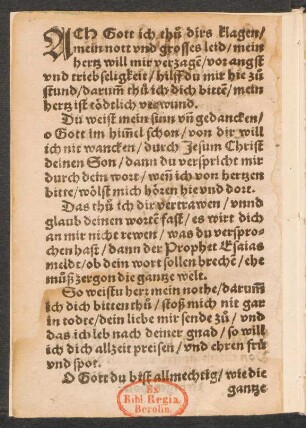 ACh Gott ich thů dirs klagen/
mein nott vnd grosses leid/ mein
hertz will mir verzagẽ/ vor angst
vnd triebseligkeit/ hilff du mir hie zů
stund/ darum̃ thů ich dich bittẽ/ mein
hertz ist tödtlich verwund.
Du weist mein sünn vñ gedancken/
o Gott im him̃el schon/ von dir will
ich nit wancken/ durch Jesum Christ
deinen Son/ dann du verspricht mir
durch dein wort/ weñ ich von hertzen
bitte/ wölst mich hören hie vnd dort.
Das thů ich dir vertrawen/ vnnd
glaub deinen wortẽ fast/ es wirt dich
an mir nicht rewen/ was du verspro-
chen hast/ dann der Prophet Esaias
meldt/ ob dein wort sollen brechẽ/ ehe
můß zergon die gantze welt.
So weistu herr mein nothe/ darum̃
ich dich bitten thů/ stoß mich nit gar
in todte/ dein liebe mir sende zů/ vnd
das ich leb nach deiner gnad/ so will
ich dich allzeit preisen/ vnd ehren frů
vnd spot.
O Gott du bist allmechtig/ wie die
gantze
Ex
Bibl. Regia
Berolin.